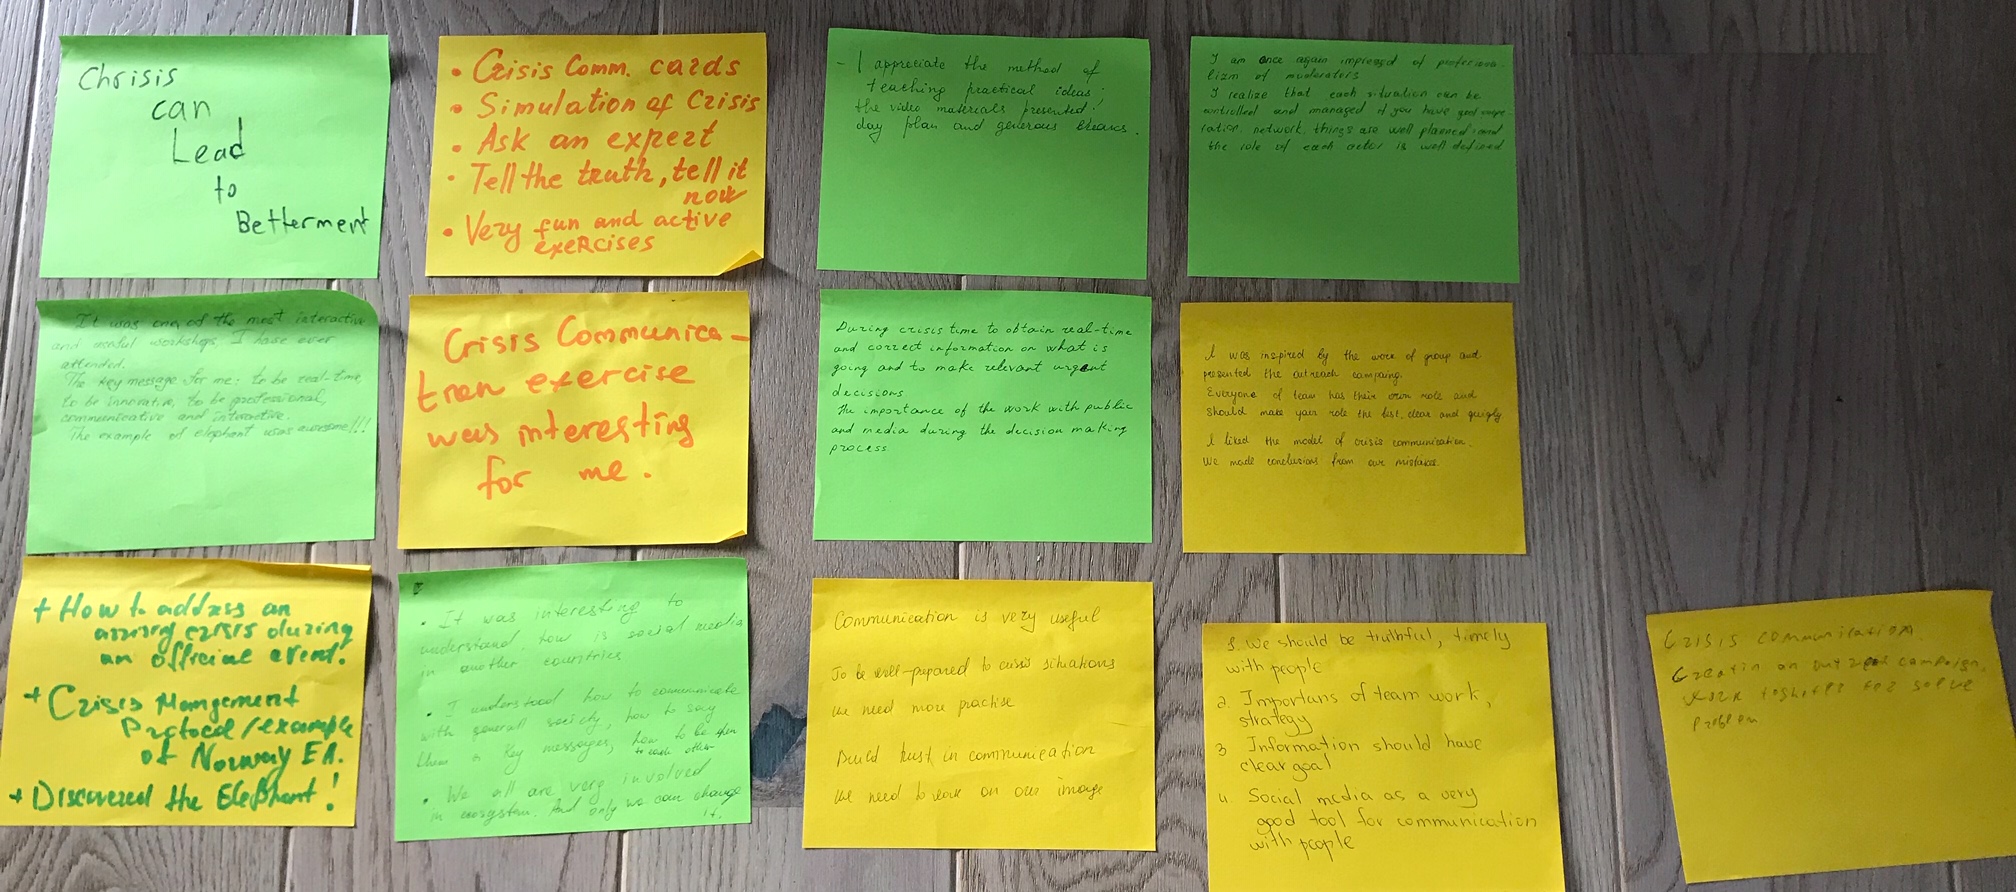 Chrisis
can
Lead
to
Betterment
• Crisis Comm. cards
• Simulation of Crisis
• Ask an expert
• Tell the truth, tell it
now
• Very fun and active
exercises
- I appreciate the method of
teaching practical ideas
the video materials presented!
day plan and generous breaks.
I am once again impressed of professiona-
lizm of moderators
I realize that each situation can be
controlled and managed if you have good coope-
ration, network, things are well planned and
the role of each actor is well defined
It was one of the most interactive
and useful workshops, I have ever
attended.
The key message for me: to be real-time,
to be innovative, to be professional,
communicative and interactive.
The example of elephant was awesome!!!
Crisis Communica-
tion exercise
was interesting
for me.
During crisis time to obtain real-time
and correct information on what is
going and to make relevant urgent
decisions
The importance of the work with public
and media during the decision making
process
I was inspired by the work of group and
presented the outreach campaing.
Everyone of team has their own role and
should make your role the best, clear and
I liked the model of crisis communication.
We made conclusions from our mistakes.
+ How to address an
crisis during
an official event.
+ Crisis Mangement
Protocol/example
of Norway EA.
+ Discovered the Elephant!
• It was interesting to
understand, how is social media
in another countries
• I understood how to communicate
with general society, how to say
them a key messages, how to be
to each other
• We all are very involved
in ecosystem. And only we can change
it.
Communication is very useful
To be well-prepared to crisis situations
we need more practise
Build trust in communication
we need to work on our image
1. We should be truthful, timely
with people
2. Importans of team work,
strategy
3 Information should have
clear goal
4. Social media as a very
good tool for communication
with people
Crisis communication
Creatin an campaign,
work for solve
problem